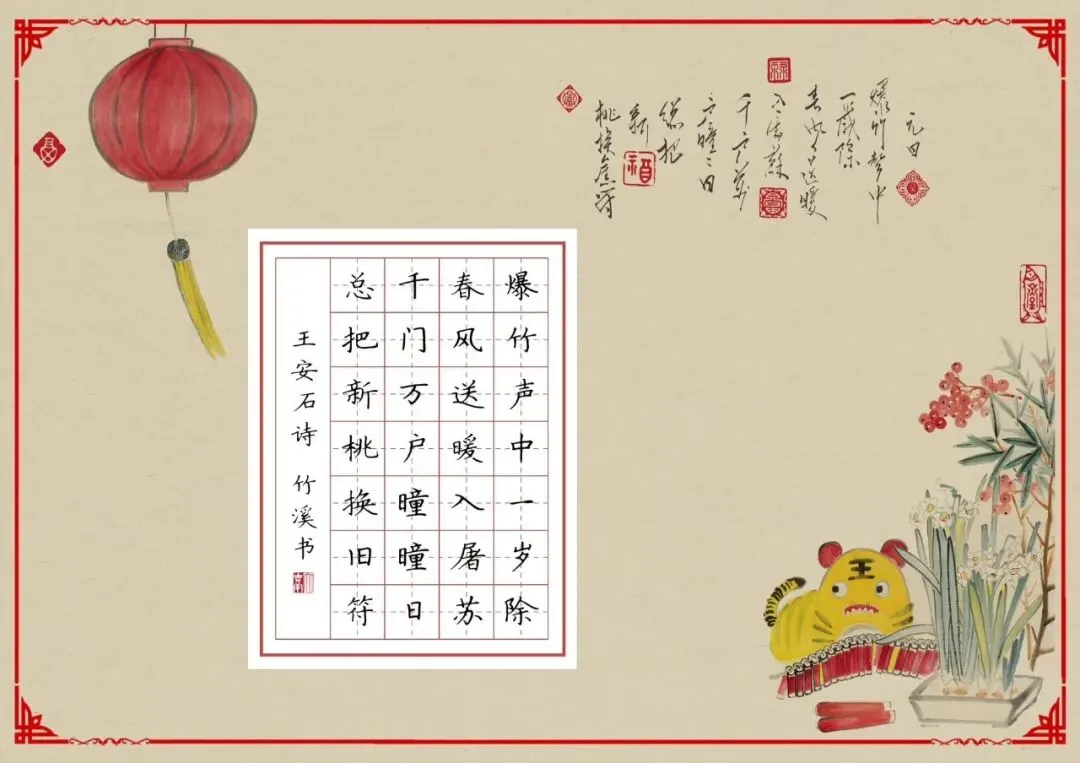 元日
爆竹聲中
一歲除
春風送暖
入屠蘇
千户萬
總把
新
桃換舊符
爆竹声中一岁除
春风送暖入屠苏
千门万户曈曈日
总把新桃换旧符
王安石诗 竹溪书
王